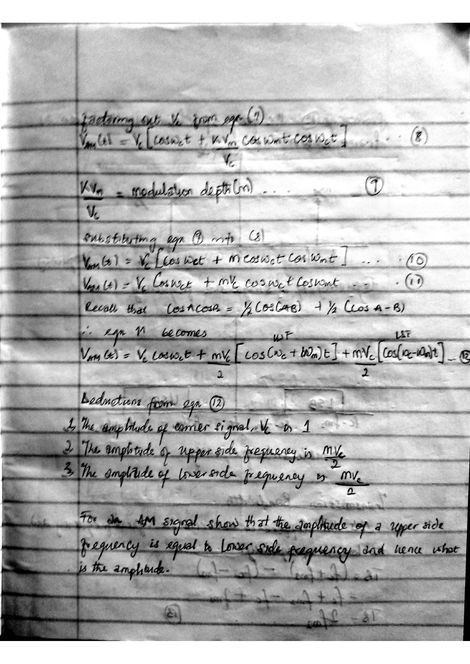 Factoring out Vc from eqn (7)
VAM(t) = Vc [cosωct + KVm/Vc cosωmt cosωct] ... (8)
KVm/Vc = modulation depth (m) ... (9)
Substituting eqn (9) into (8)
VAM(t) = Vc [cosωct + m cosωct cosωmt] ... (10)
VAM(t) = Vc cosωct + mVc cosωct cosωmt ... (11)
Recall that cosAcosB = 1/2 cos(A+B) + 1/2 (cos A-B)
∴ eqn 11 becomes
USF LSF
VAM(t) = Vc cosωct + mVc/2 [cos(ωc + ωm)t] + mVc/2 [cos(ωc-ωm)t] -- (12)
Deductions from eqn (12)
1, The amplitude of carrier signal, Vc is 1
2 The amplitude of upper side frequency is mVc/2
3, The amplitude of lower side frequency is mVc/2
For an AM signal show that the amplitude of a upper side
frequency is equal to Lower side frequency and hence what
is the amplitude.